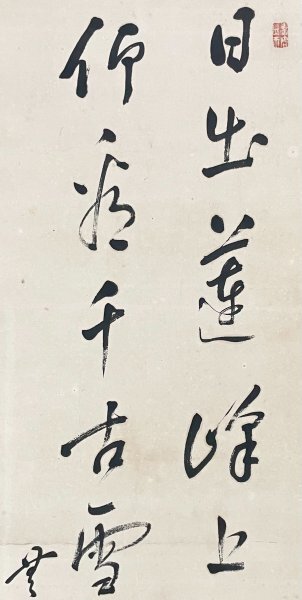 日出蓮峰上
仰看千古雪